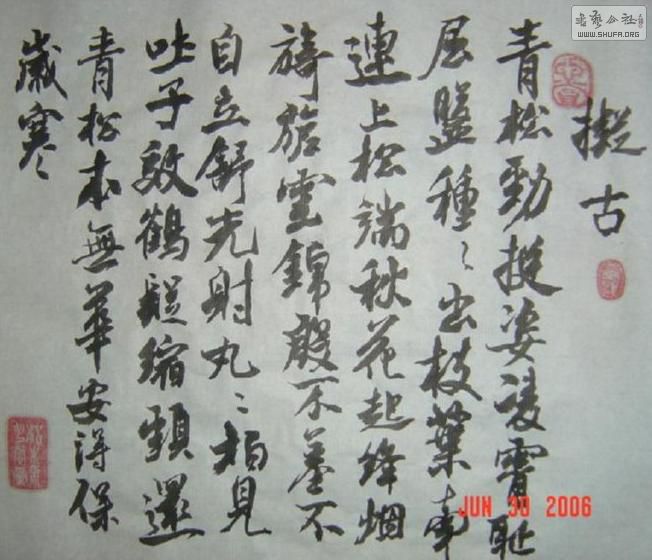 擬古
青松勁挺姿凌霄恥
屈盤種〻出枝葉牽
連上松端秋花起絳烟
旖旎雲錦殷不羞不
自立舒光射丸〻柏見
吐子效鶴疑縮頸還
青松本無華安得保
歲寒
書藝公社
WWW.SHUFA.ORG
JUN 30 2006